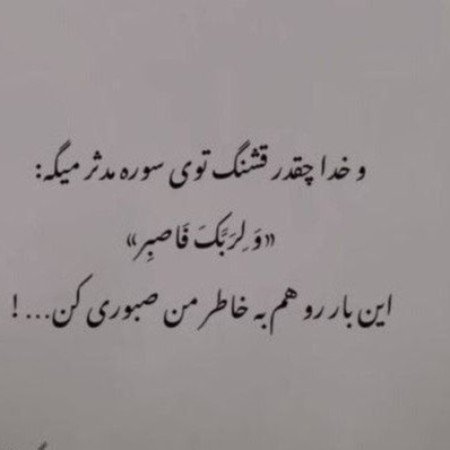 و خدا چقدر قشنگ توی سوره مدثر میگه:
«وَ لِرَبِّکَ فَاصبِر»
این بار رو هم به خاطر من صبوری کن...!